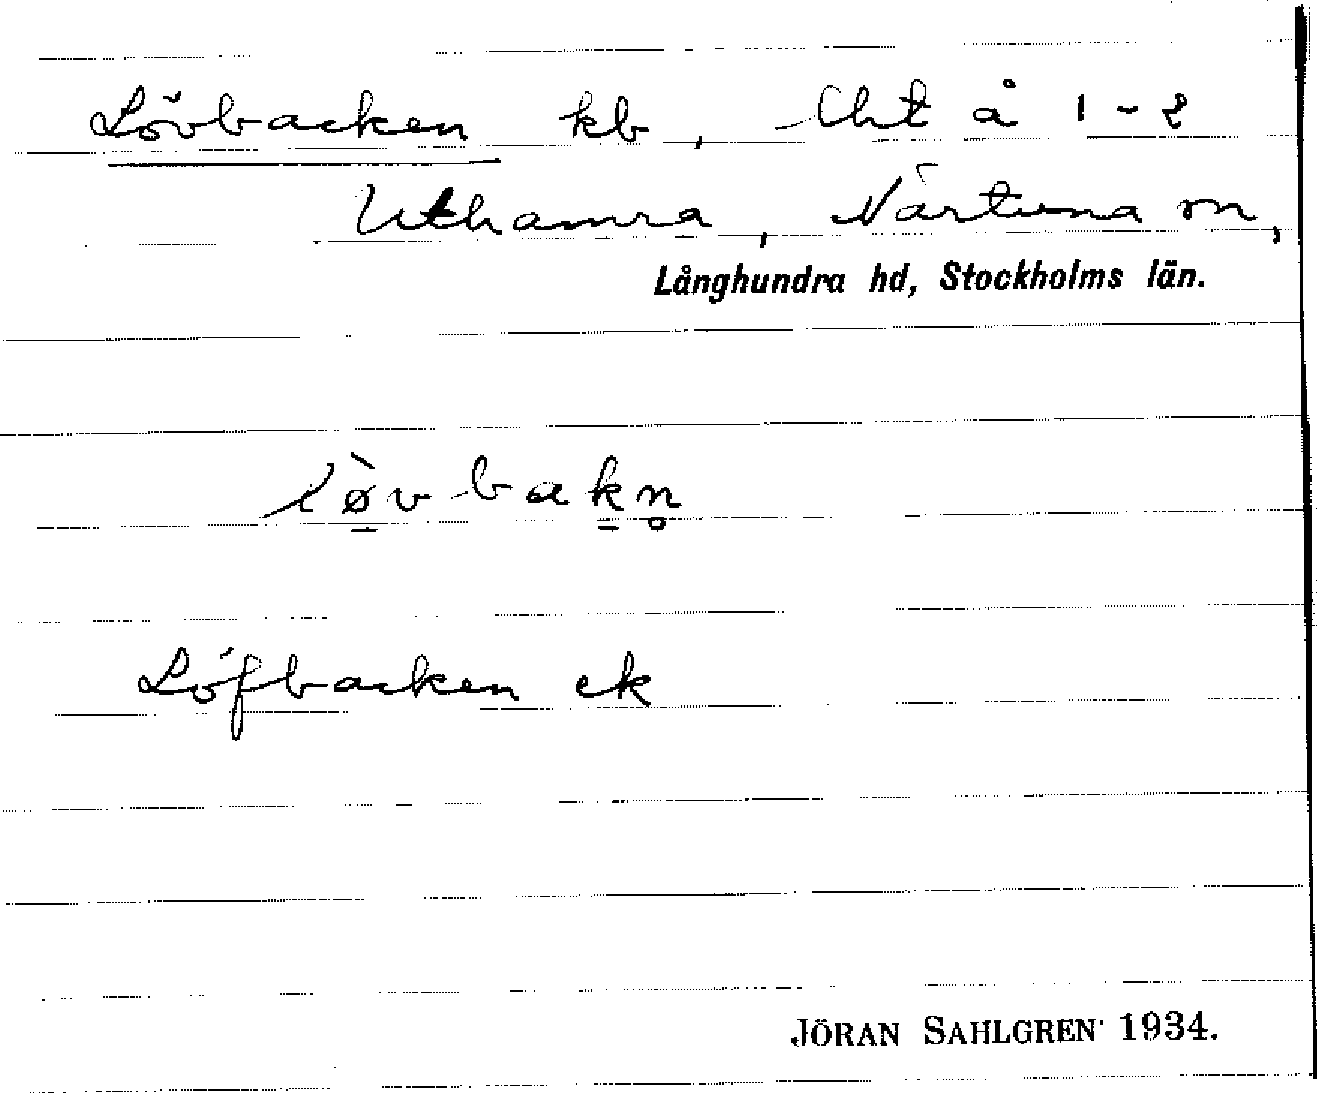 Lövbacken kb, lht å 1-2
Uthamra, Närtuna sn,
Långhundra hd, Stockholms län.
lø̀vbakn̥
Löfbacken ek
JÖRAN SAHLGREN 1934.